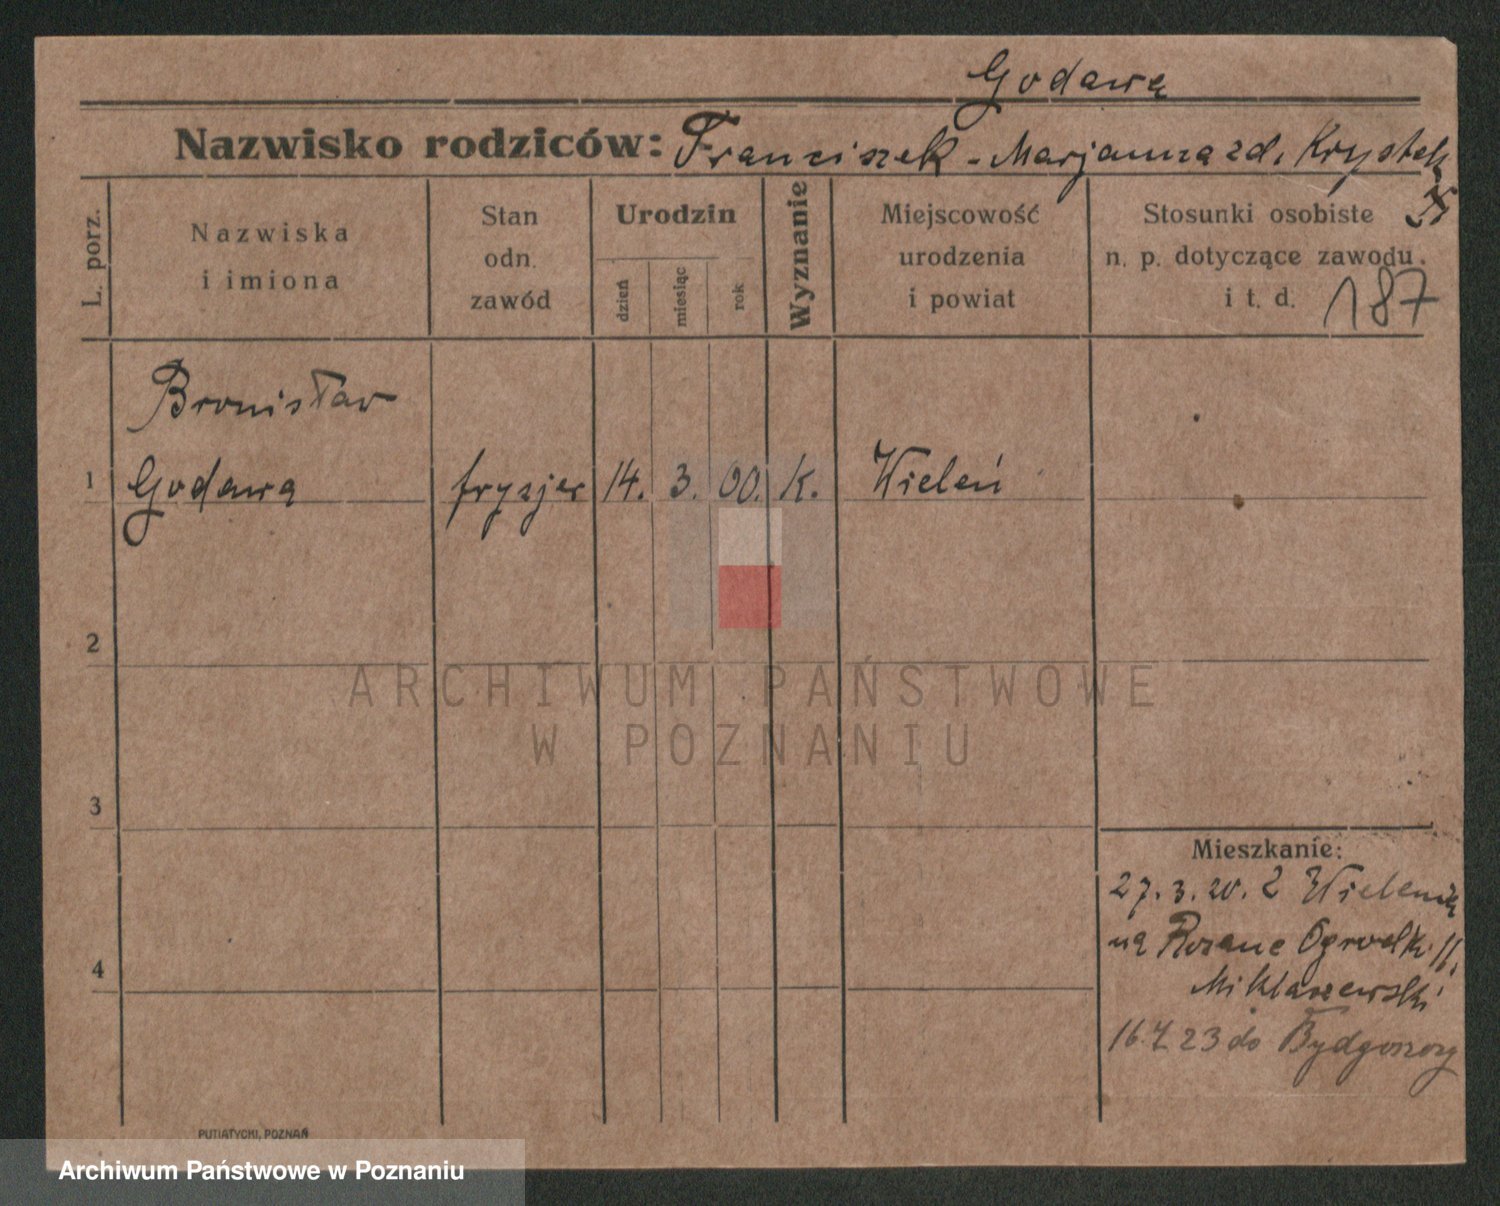 Godawa
Nazwisko rodziców: Franciszek - Marjanna zd. Krystek
L. porz.
Nazwiska
i imiona
Stan
odn.
zawód
Urodzin
dzień
miesiąc
rok
Wyznanie
Miejscowość
urodzenia
i powiat
Stosunki osobiste
n. p. dotyczące zawodu
i t. d.
187
Bronisław
1 Godawa fryzjer 14. 3. 00. K. Wieleń
2
ARCHIWUM PAŃSTWOWE
W POZNANIU
3
Mieszkanie:
27.3.20. z Wielenia
na Rozane Ogrodki 11.
Miklaszewski
4
16.7.23 do Bydgoszczy
PUTIATYCKI, POZNAŃ
Archiwum Państwowe w Poznaniu